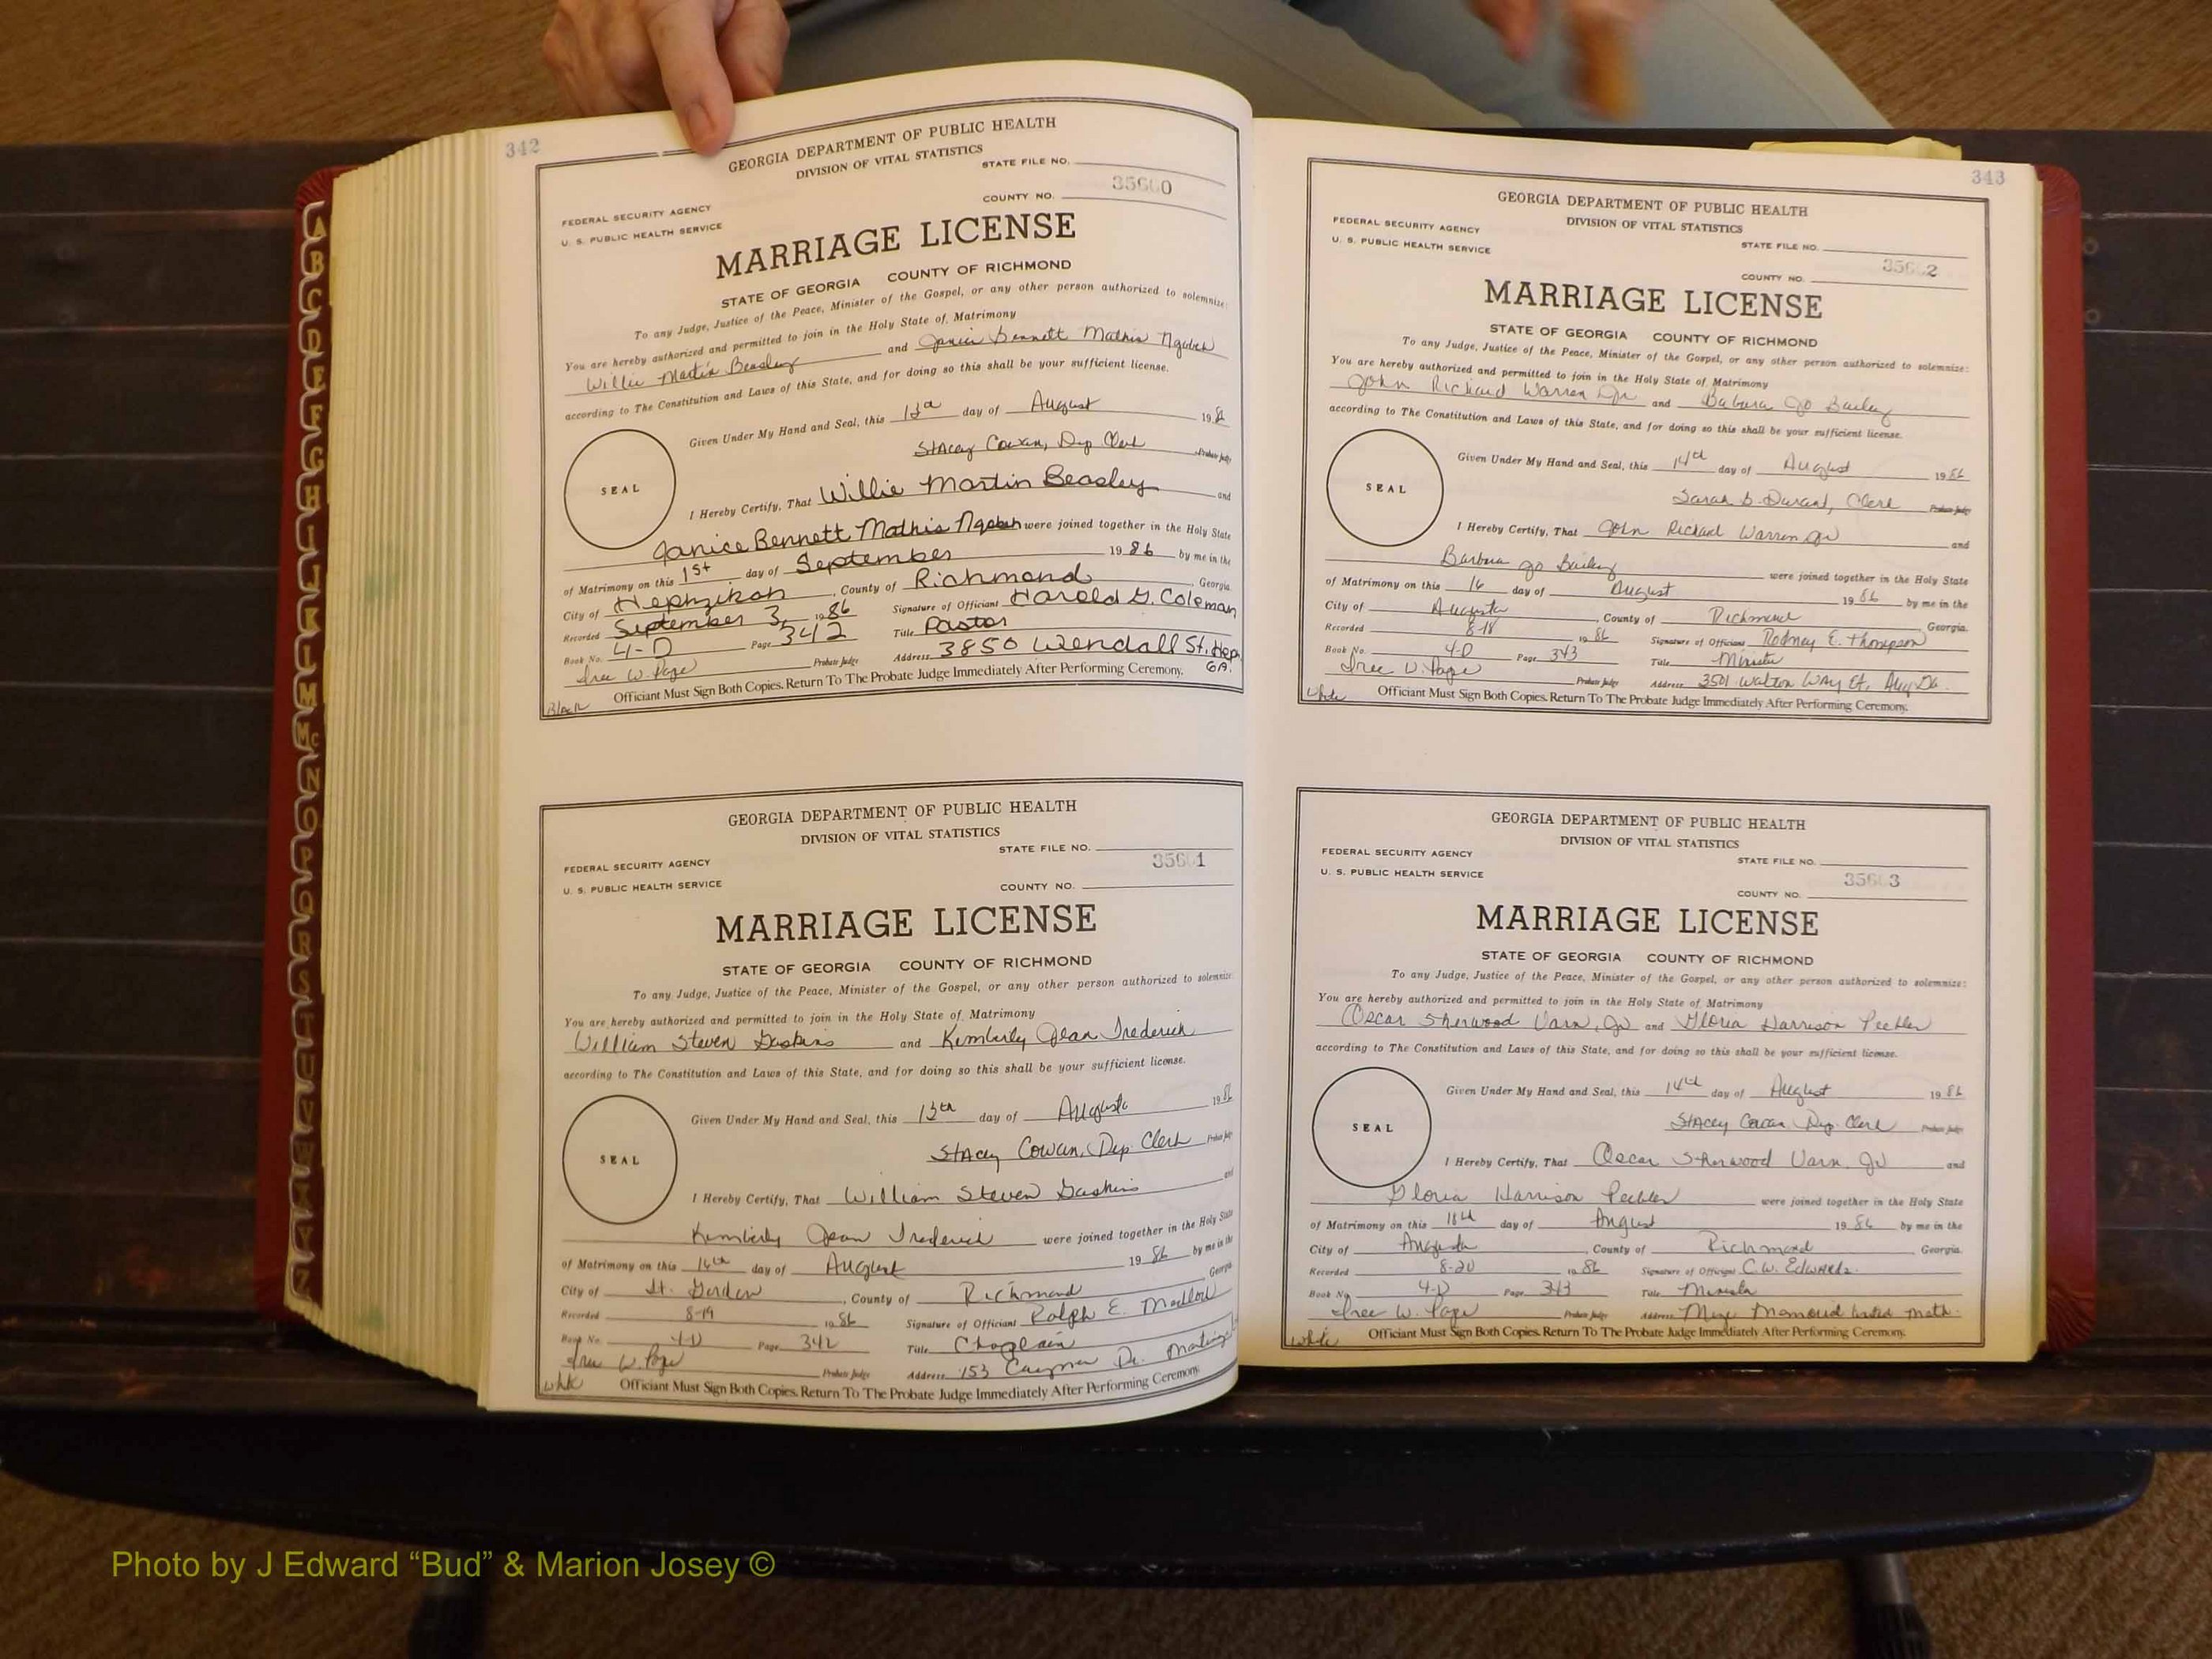 342
GEORGIA DEPARTMENT OF PUBLIC HEALTH
DIVISION OF VITAL STATISTICS
STATE FILE NO.
COUNTY NO.
FEDERAL SECURITY AGENCY
U. S. PUBLIC HEALTH SERVICE
MARRIAGE LICENSE
STATE OF GEORGIA COUNTY OF RICHMOND
To any Judge, Justice of the Peace, Minister of the Gospel, or any other person authorized to solemnize:
You are hereby authorized and permitted to join in the Holy State of Matrimony
Willie Martin Beasley and Janice Bennett Mathis
according to The Constitution and Laws of this State, and for doing so this shall be your sufficient license.
Given Under My Hand and Seal, this 13th day of August 1986
Stacey Cowan, Dep Clerk Probate Judge
SEAL
I Hereby Certify, That Willie Martin Beasley and
Janice Bennett Mathis were joined together in the Holy State
of Matrimony on this 1st day of September 1986 by me in the
City of Hephzibah, County of Richmond, Georgia.
Recorded September 3, 1986 Signature of Officiant Harold G. Coleman
Book No. 4-D Page 342 Title Pastor
W. Page Probate Judge Address 3850 Wendall St. Hep. GA.
Officiant Must Sign Both Copies. Return To The Probate Judge Immediately After Performing Ceremony.
Black
GEORGIA DEPARTMENT OF PUBLIC HEALTH
DIVISION OF VITAL STATISTICS
STATE FILE NO.
COUNTY NO.
FEDERAL SECURITY AGENCY
U. S. PUBLIC HEALTH SERVICE
MARRIAGE LICENSE
STATE OF GEORGIA COUNTY OF RICHMOND
To any Judge, Justice of the Peace, Minister of the Gospel, or any other person authorized to solemnize:
You are hereby authorized and permitted to join in the Holy State of Matrimony
William Steven Gaskins and Kimberly Jean Frederick
according to The Constitution and Laws of this State, and for doing so this shall be your sufficient license.
Given Under My Hand and Seal, this 13th day of 1986
Stacey Cowan, Dep. Clerk Probate Judge
SEAL
I Hereby Certify, That William Steven Gaskins and
Kimberly Jean Frederick were joined together in the Holy State
of Matrimony on this 16th day of August 1986 by me in the
City of Ft. Gordon, County of Richmond Georgia
Recorded 8-19 1986 Signature of Officiant Ralph E.
Book No. 4-D Page 342 Title Chaplain
W. Page Probate Judge Address 153 Dr. Martinez
Officiant Must Sign Both Copies. Return To The Probate Judge Immediately After Performing Ceremony.
White
343
GEORGIA DEPARTMENT OF PUBLIC HEALTH
DIVISION OF VITAL STATISTICS
STATE FILE NO.
COUNTY NO.
FEDERAL SECURITY AGENCY
U. S. PUBLIC HEALTH SERVICE
MARRIAGE LICENSE
STATE OF GEORGIA COUNTY OF RICHMOND
To any Judge, Justice of the Peace, Minister of the Gospel, or any other person authorized to solemnize:
You are hereby authorized and permitted to join in the Holy State of Matrimony
John Richard Warren Jr and Barbara Jo Bailey
according to The Constitution and Laws of this State, and for doing so this shall be your sufficient license.
Given Under My Hand and Seal, this 14th day of August 1986
Sarah B. Durant, Clerk Probate Judge
SEAL
I Hereby Certify, That John Richard Warren Jr and
Barbara Jo Bailey were joined together in the Holy State
of Matrimony on this 16 day of August 1986 by me in the
City of Augusta, County of Richmond Georgia.
Recorded 8-18 1986 Signature of Officiant Rodney E. Thompson
Book No. 4-D Page 343 Title Minister
W. Page Probate Judge Address 3501 Walton Way Et. Aug Ga.
Officiant Must Sign Both Copies. Return To The Probate Judge Immediately After Performing Ceremony.
White
GEORGIA DEPARTMENT OF PUBLIC HEALTH
DIVISION OF VITAL STATISTICS
STATE FILE NO.
COUNTY NO.
FEDERAL SECURITY AGENCY
U. S. PUBLIC HEALTH SERVICE
MARRIAGE LICENSE
STATE OF GEORGIA COUNTY OF RICHMOND
To any Judge, Justice of the Peace, Minister of the Gospel, or any other person authorized to solemnize:
You are hereby authorized and permitted to join in the Holy State of Matrimony
Oscar Sherwood Varn, Jr and Gloria Harrison Peebler
according to The Constitution and Laws of this State, and for doing so this shall be your sufficient license.
Given Under My Hand and Seal, this 14th day of August 1986
Stacey Cowan, Dep. Clerk Probate Judge
SEAL
I Hereby Certify, That Oscar Sherwood Varn, Jr and
Gloria Harrison Peebler were joined together in the Holy State
of Matrimony on this 18th day of August 1986 by me in the
City of Augusta, County of Richmond Georgia.
Recorded 8-20 1986 Signature of Officiant C.W. Edwards.
Book No. 4-D Page 343 Title Minister
W. Page Probate Judge Address United Meth.
Officiant Must Sign Both Copies. Return To The Probate Judge Immediately After Performing Ceremony.
White
A
B
C
D
E
F
G
H
I
J
K
L
M
Mc
N
O
P
Q
R
S
T
U
V
W
X
Y
Z
Photo by J Edward “Bud” & Marion Josey ©